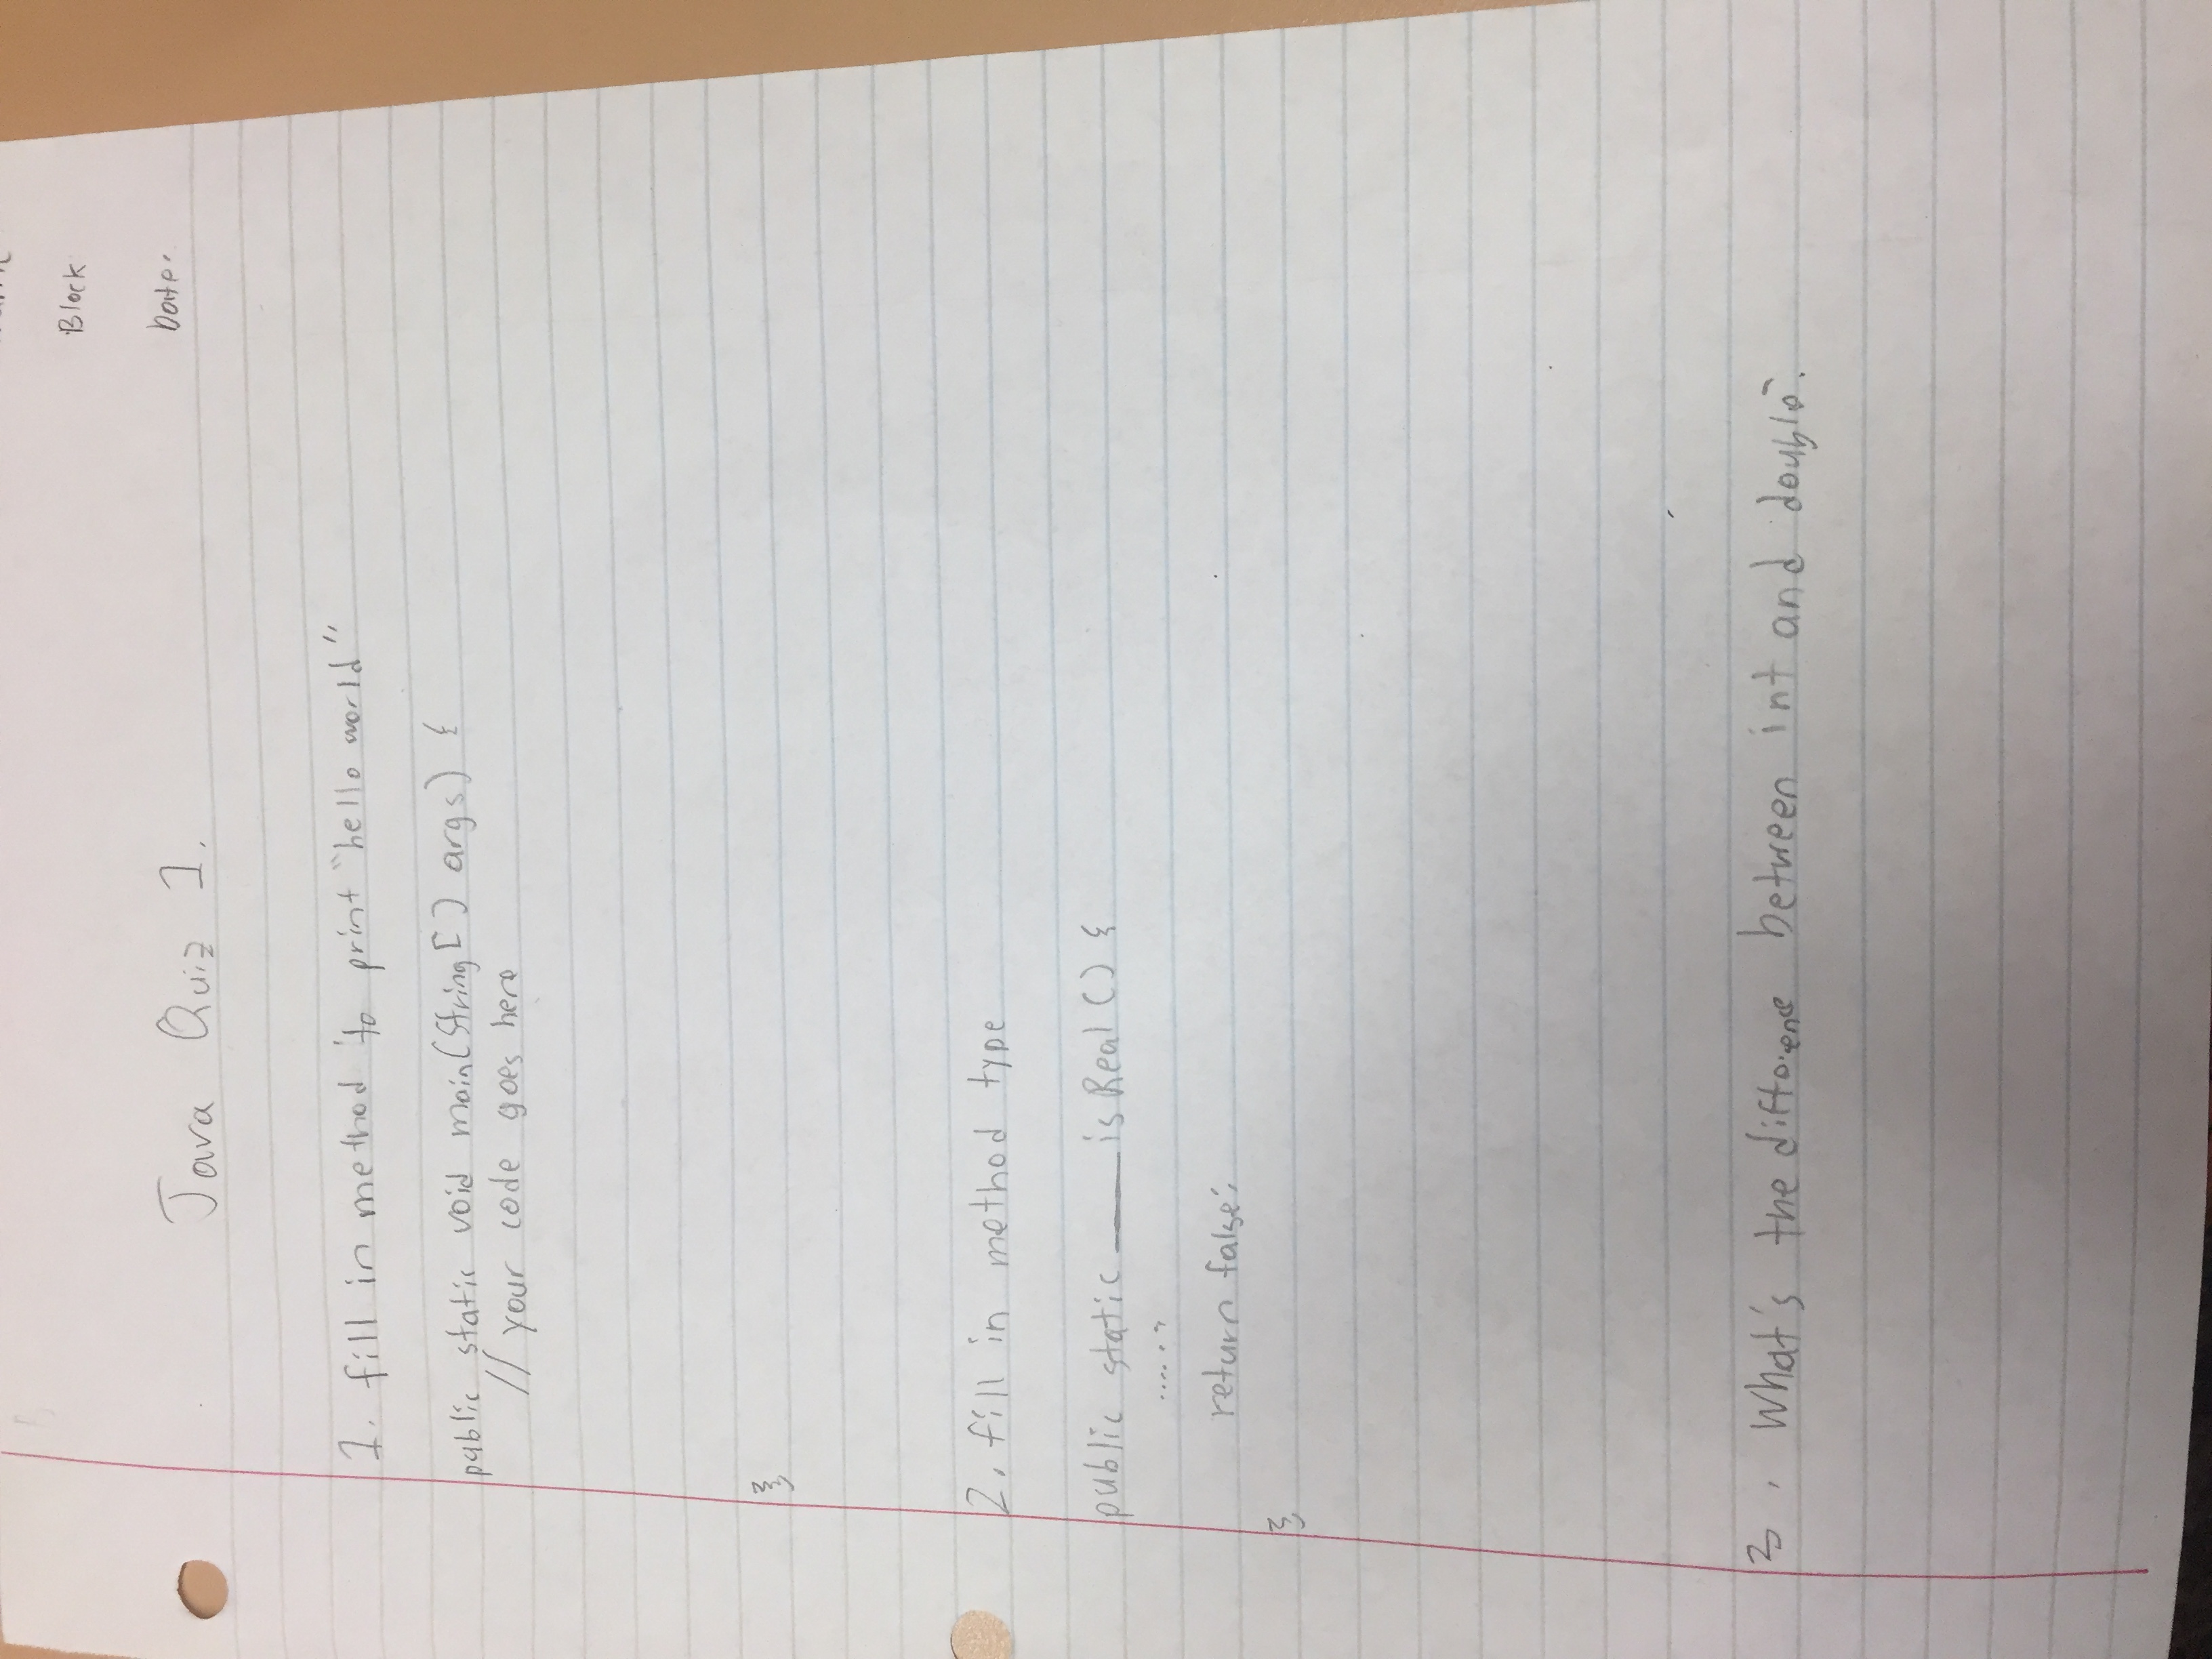 Block
Date.
Java Quiz 1.
1. fill in method to print "hello world"
public static void main(String[] args) {
// your code goes here
}
2. fill in method type
public static ____ isReal() {
......
return false;
}
3. What's the difference between int and double?